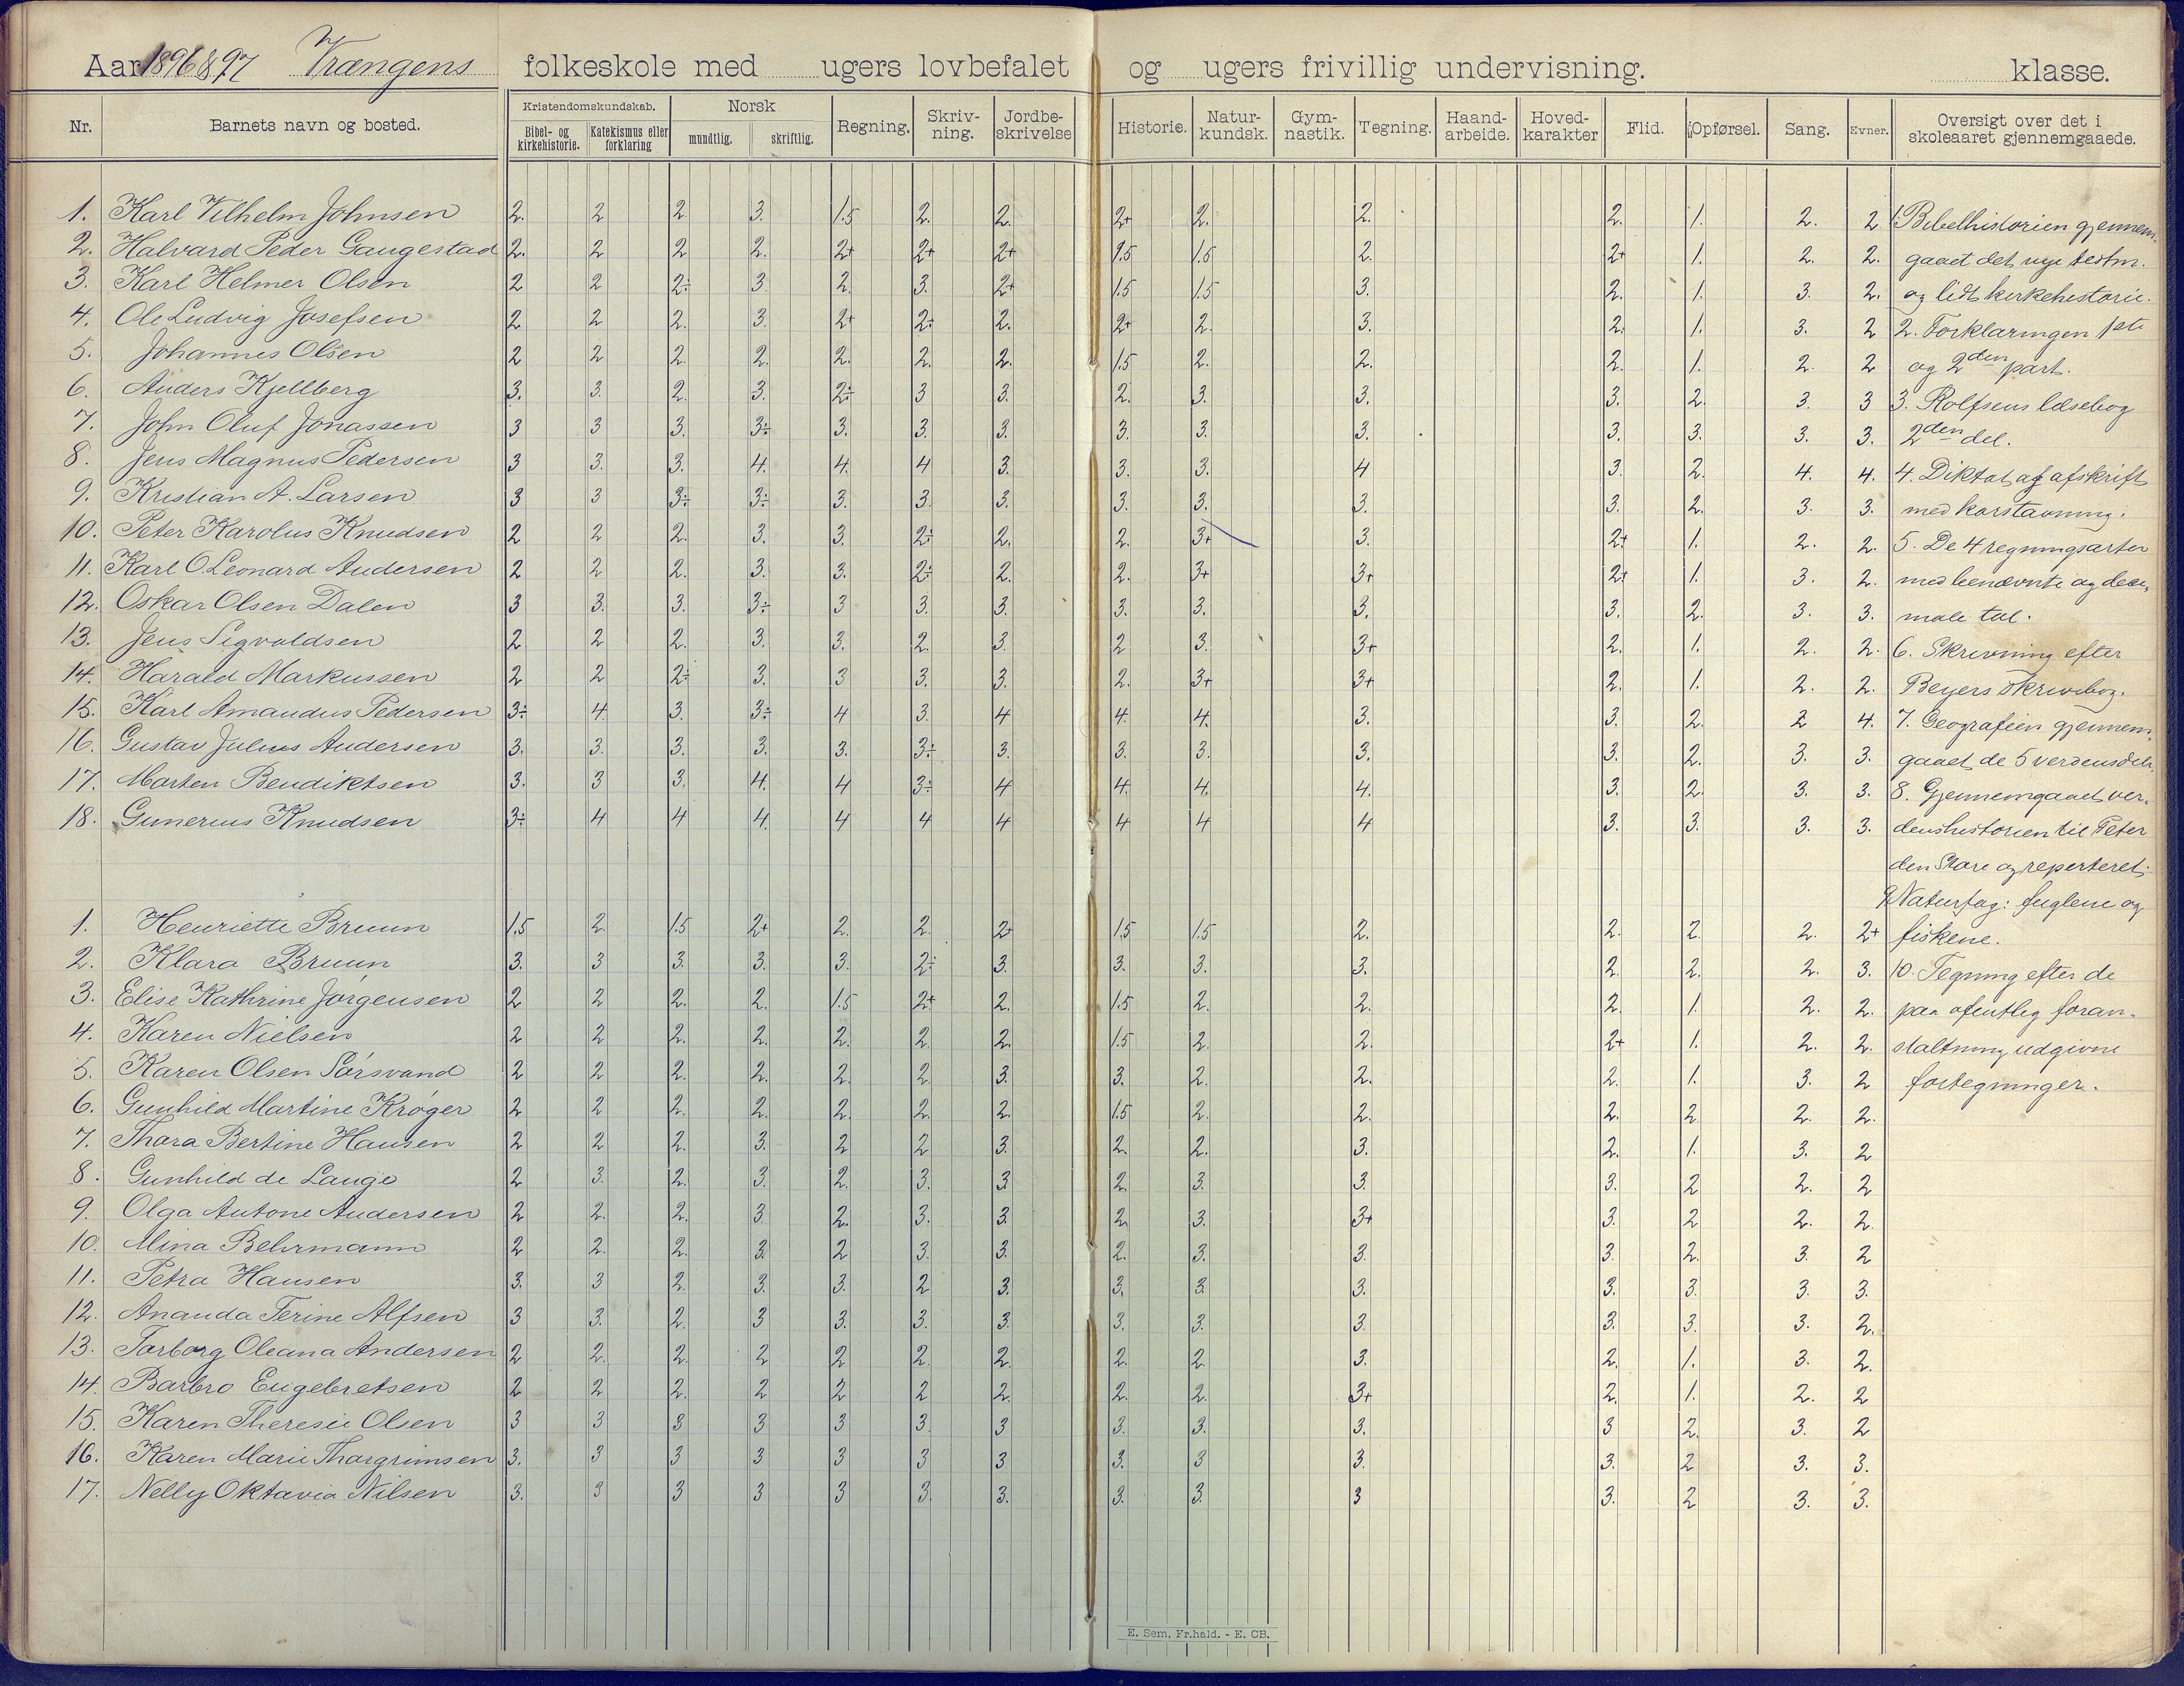 Aar 1896 & 97 Vrangens folkeskole med ugers lovbefalet og ugers frivillig undervisning. klasse.
Nr. Barnets navn og bosted. Kristendomskundskab. Bibel- og kirkehistorie. Katekismus eller forklaring Norsk mundtlig. skriftlig. Regning. Skriv-ning. Jordbe-skrivelse Historie. Natur-kundsk. Gym-nastik. Tegning. Haand-arbeide. Hoved-karakter Flid. Opførsel. Sang. Evner. Oversigt over det i skoleaaret gjennemgaaede.
1. Karl Vilhelm Johnsen 2. 2 2 3. 1.5 2. 2. 2+ 2. 2. 2. 1. 2. 2 1. Bibelhistorien gjennem-
2. Halvard Peder Gaugestad 2. 2 2 2. 2+ 2+ 2+ 1.5 1.5 2. 2+ 1. 2. 2. gaaet det nye testm.
3. Karl Helmer Olsen 2 2 2÷ 3 2. 3. 2+ 1.5 1.5 3. 2. 1. 3. 2. og lidt kirkehistorie.
4. Ole Ludvig Josefsen 2 2 2. 3. 2+ 2÷ 2. 2+ 2. 3. 2. 1. 3. 2 2. Forklaringen 1ste
5. Johannes Olsen 2 2 2. 2. 2. 2. 2. 1.5 2. 2. 2. 1. 2. 2 og 2den part.
6. Anders Kjellberg 3. 3. 2. 3. 2÷ 3 3. 2. 3. 3. 3. 2. 3. 3 3. Rolfsens læsebog
7. John Oluf Jonassen 3 3 3. 3÷ 3. 3. 3. 3. 3. 3. 3. 3. 3. 3. 2den del.
8. Jens Magnus Pedersen 3 3. 3. 4. 4. 4 3. 3. 3. 4 3. 2. 4. 4. 4. Diktat og afskrift
9. Kristian A. Larsen 3 3 3÷ 3÷ 3. 3. 3. 3. 3. 3. 3. 2. 3. 3. med
10. Peter Karolus Knudsen 2 2 2. 3. 3. 2÷ 2. 2. 3+ 3. 2+ 1. 2. 2. 5. De 4 regningsarter
11. Karl O. Leonard Andersen 2 2 2. 3. 3. 2÷ 2. 2. 3+ 3+ 2+ 1. 3. 2. med benævnte og deci-
12. Oskar Olsen Dalen 3 3. 3. 3÷ 3 3. 3. 3. 3. 3. 3. 2. 3. 3. male tal.
13. Jens Sigvaldsen 2 2 2. 3. 3. 2. 3. 2 3. 3+ 2. 1. 2. 2. 6. Skrivning efter
14. Harald Markussen 2 2 2÷ 3. 3 3. 3. 2. 3+ 3+ 2. 1. 2. 2. Beyers skrivebog.
15. Karl Amandus Pedersen 3÷ 4. 3. 3÷ 4 3. 4 4. 4. 3. 3. 2. 2 4. 7. Geografien gjennem-
16. Gustav Julius Andersen 3. 3. 3. 3. 3. 3÷ 3. 3. 3. 3. 3. 2. 3. 3. gaaet de 5 verdensdele.
17. Marten Bendiktsen 3. 3 3. 4. 4 3÷ 4 4. 4. 4. 3. 2. 3. 3. 8. Gjennemgaaet ver-
18. Gunerius Knudsen 3÷ 4 4 4. 4 4 4 4 4 4 3. 3. 3. 3. denshistorien til Peter
den Store og reperteret.
9 Naturfag: fuglene og
1. Henriette Bruun 1.5 2. 1.5 2+ 2. 2. 2+ 1.5 1.5 2. 2. 2. 2. 2+ fiskene.
2. Klara Bruun 3. 3 3. 3. 3. 2÷ 3. 3. 3. 3. 2. 2. 2. 3. 10. Tegning efter de
3. Elise Kathrine Jørgensen 2 2 2. 2. 1.5 2+ 2. 1.5 2. 2. 2. 1. 2. 2. paa ofentleg foran-
4. Karen Nielsen 2 2 2. 2. 2. 2. 2. 1.5 2. 2. 2+ 1. 2. 2. staltning udgivne
5. Karen Olsen Sørsvand 2 2 2. 2. 2. 2. 3. 3. 2. 2. 2. 1. 3. 2 fortegninger.
6. Gunhild Martine Krøger 2 2 2. 2. 2. 2. 2. 1.5 2. 2. 2. 2 2. 2.
7. Thora Bertine Hansen 2 2 2. 3. 2 2 3. 2. 2. 3. 2. 1. 3. 2
8. Gunhild de Lange 2 3. 2. 3. 2. 3. 3 2. 3. 3. 3. 2 2. 2
9. Olga Antone Andersen 2 2. 2. 3 2. 3. 3. 2. 3. 3+ 3. 2 2. 2.
10. Mina Behrmann 2 2. 2. 3. 2 3. 3. 2. 3. 3. 3. 2. 3. 2
11. Petra Hansen 3. 3 2. 3. 3. 2 3. 3. 3. 3. 3. 3. 3. 3.
12. Ananda Terine Alfsen 3 3. 2. 3 3. 3. 3. 3. 3. 3. 3. 3. 3. 2.
13. Torborg Oleana Andersen 2 2. 2. 2 2 2. 2. 2. 2. 3. 2. 1. 3. 2.
14. Barbro Engebretsen 2 2 2. 2 2 2 2. 2. 2. 3+ 2. 1. 2. 2
15. Karen Theresie Olsen 3 3 3 3 3 3. 3 3. 3. 3. 3 2. 3. 2
16. Karen Marie Thorgrimsen 3. 3 3 3 3 3 3 3. 3 3. 3. 2 3. 3.
17. Nelly Oktavia Nilsen 3. 3 3 3 3 3. 3. 3. 3. 3 3. 2 3. 3.
E. Sem, Fr.hald. - E. CB.